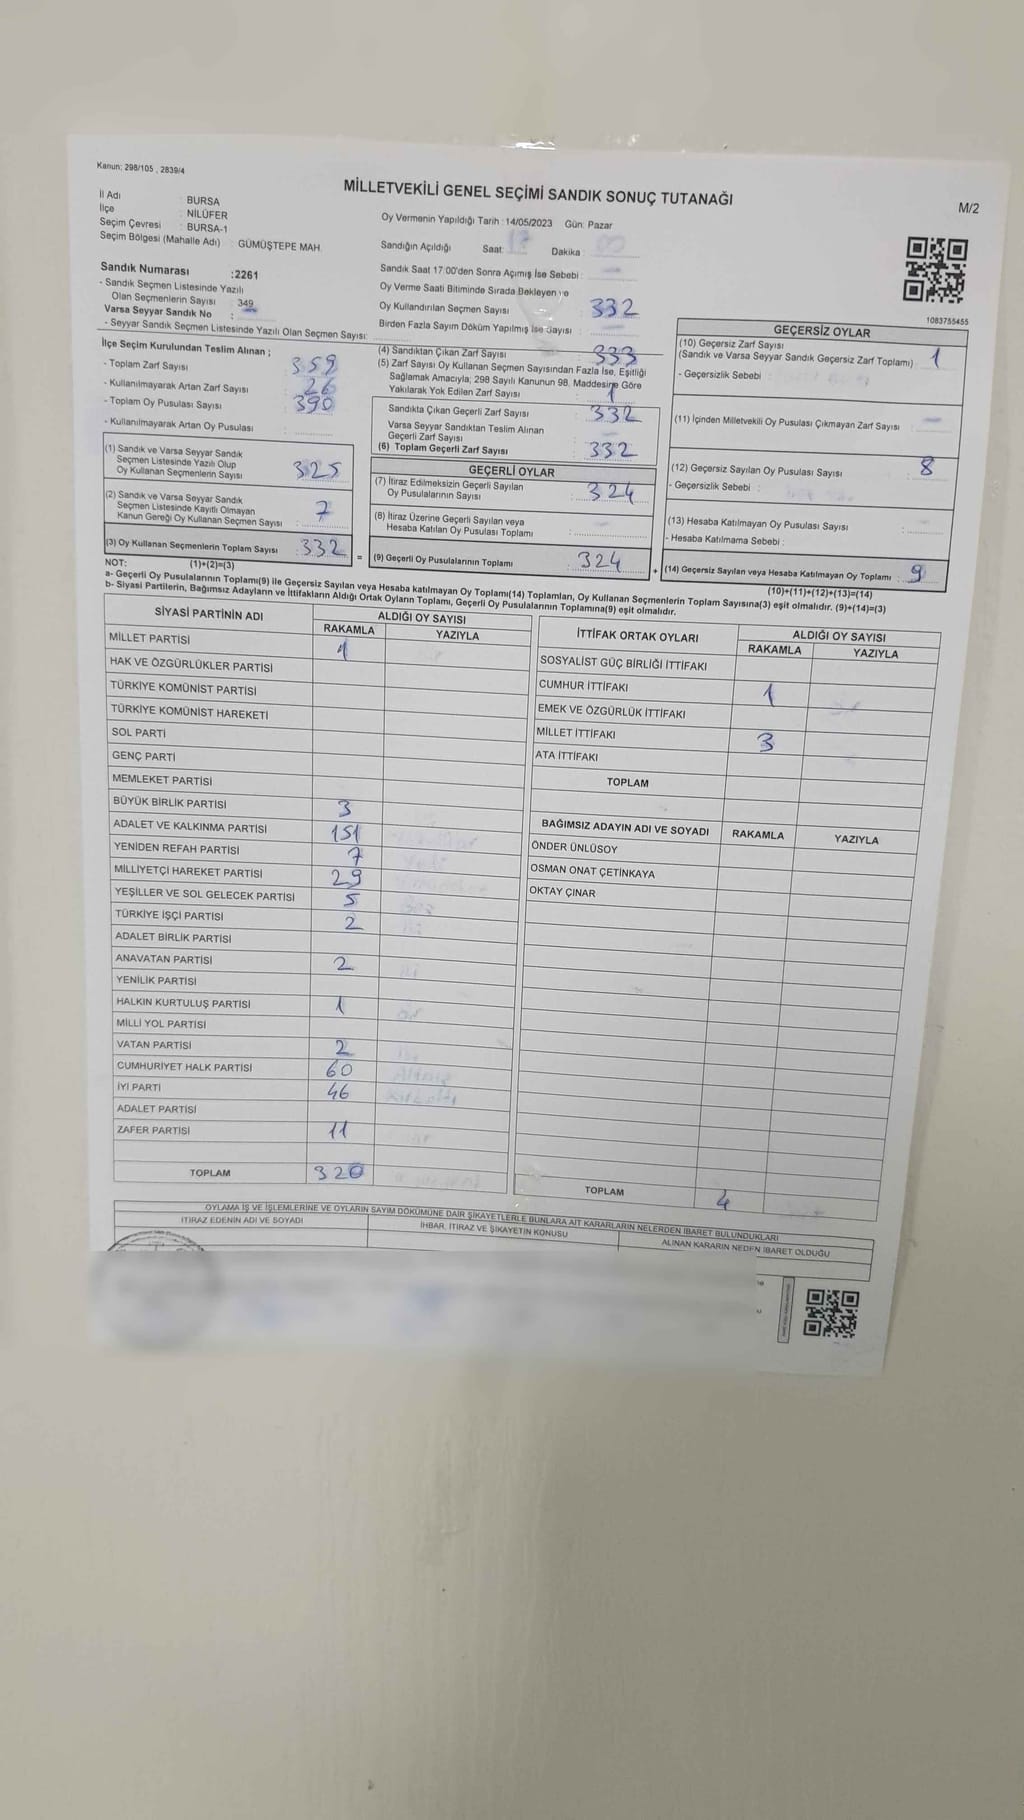 Kanun; 298/105 , 2839/4
MİLLETVEKİLİ GENEL SEÇİMİ SANDIK SONUÇ TUTANAĞI
M/2
İl Adı : BURSA
İlçe : NİLÜFER
Seçim Çevresi : BURSA-1
Seçim Bölgesi (Mahalle Adı) : GÜMÜŞTEPE MAH.
Oy Vermenin Yapıldığı Tarih : 14/05/2023 Gün: Pazar
Sandığın Açıldığı Saat: Dakika :
Sandık Saat 17:00'den Sonra Açımış İse Sebebi :
Oy Verme Saati Bitiminde Sırada Bekleyen ve
Oy Kullandırılan Seçmen Sayısı : 332
Birden Fazla Sayım Döküm Yapılmış İse Sayısı :
Sandık Numarası :2261
- Sandık Seçmen Listesinde Yazılı
Olan Seçmenlerin Sayısı : 349
Varsa Seyyar Sandık No :
- Seyyar Sandık Seçmen Listesinde Yazılı Olan Seçmen Sayısı:
İlçe Seçim Kurulundan Teslim Alınan ;
- Toplam Zarf Sayısı : 359
- Kullanılmayarak Artan Zarf Sayısı : 26
- Toplam Oy Pusulası Sayısı : 390
- Kullanılmayarak Artan Oy Pusulası :
(1) Sandık ve Varsa Seyyar Sandık
Seçmen Listesinde Yazılı Olup
Oy Kullanan Seçmenlerin Sayısı : 325
(2) Sandık ve Varsa Seyyar Sandık
Seçmen Listesinde Kayıtlı Olmayan
Kanun Gereği Oy Kullanan Seçmen Sayısı : 7
(3) Oy Kullanan Seçmenlerin Toplam Sayısı : 332
(4) Sandıktan Çıkan Zarf Sayısı : 333
(5) Zarf Sayısı Oy Kullanan Seçmen Sayısından Fazla İse, Eşitliği
Sağlamak Amacıyla; 298 Sayılı Kanunun 98. Maddesine Göre
Yakılarak Yok Edilen Zarf Sayısı : 1
Sandıkta Çıkan Geçerli Zarf Sayısı : 332
Varsa Seyyar Sandıktan Teslim Alınan
Geçerli Zarf Sayısı :
(6) Toplam Geçerli Zarf Sayısı : 332
GEÇERLİ OYLAR
(7) İtiraz Edilmeksizin Geçerli Sayılan
Oy Pusulalarının Sayısı : 324
(8) İtiraz Üzerine Geçerli Sayılan veya
Hesaba Katılan Oy Pusulası Toplamı :
= (9) Geçerli Oy Pusulalarının Toplamı : 324 +
1083755455
GEÇERSİZ OYLAR
(10) Geçersiz Zarf Sayısı
(Sandık ve Varsa Seyyar Sandık Geçersiz Zarf Toplamı) : 1
- Geçersizlik Sebebi :
(11) İçinden Milletvekili Oy Pusulası Çıkmayan Zarf Sayısı :
(12) Geçersiz Sayılan Oy Pusulası Sayısı : 8
- Geçersizlik Sebebi :
(13) Hesaba Katılmayan Oy Pusulası Sayısı :
- Hesaba Katılmama Sebebi :
(14) Geçersiz Sayılan veya Hesaba Katılmayan Oy Toplamı : 9
NOT: (1)+(2)=(3)
(10)+(11)+(12)+(13)=(14)
a- Geçerli Oy Pusulalarının Toplamı(9) ile Geçersiz Sayılan veya Hesaba katılmayan Oy Toplamı(14) Toplamları, Oy Kullanan Seçmenlerin Toplam Sayısına(3) eşit olmalıdır. (9)+(14)=(3)
b- Siyasi Partilerin, Bağımsız Adayların ve İttifakların Aldığı Ortak Oyların Toplamı, Geçerli Oy Pusulalarının Toplamına(9) eşit olmalıdır.
SİYASİ PARTİNİN ADI ALDIĞI OY SAYISI
RAKAMLA YAZIYLA
MİLLET PARTİSİ 1
HAK VE ÖZGÜRLÜKLER PARTİSİ
TÜRKİYE KOMÜNİST PARTİSİ
TÜRKİYE KOMÜNİST HAREKETİ
SOL PARTİ
GENÇ PARTİ
MEMLEKET PARTİSİ
BÜYÜK BİRLİK PARTİSİ 3
ADALET VE KALKINMA PARTİSİ 151
YENİDEN REFAH PARTİSİ 7
MİLLİYETÇİ HAREKET PARTİSİ 29
YEŞİLLER VE SOL GELECEK PARTİSİ 5
TÜRKİYE İŞÇİ PARTİSİ 2
ADALET BİRLİK PARTİSİ
ANAVATAN PARTİSİ 2
YENİLİK PARTİSİ
HALKIN KURTULUŞ PARTİSİ 1
MİLLİ YOL PARTİSİ
VATAN PARTİSİ 2
CUMHURİYET HALK PARTİSİ 60
İYİ PARTİ 46
ADALET PARTİSİ
ZAFER PARTİSİ 11
TOPLAM 320
İTTİFAK ORTAK OYLARI ALDIĞI OY SAYISI
RAKAMLA YAZIYLA
SOSYALİST GÜÇ BİRLİĞİ İTTİFAKI
CUMHUR İTTİFAKI 1
EMEK VE ÖZGÜRLÜK İTTİFAKI
MİLLET İTTİFAKI 3
ATA İTTİFAKI
TOPLAM
BAĞIMSIZ ADAYIN ADI VE SOYADI RAKAMLA YAZIYLA
ÖNDER ÜNLÜSOY
OSMAN ONAT ÇETİNKAYA
OKTAY ÇINAR
TOPLAM 4
OYLAMA İŞ VE İŞLEMLERİNE VE OYLARIN SAYIM DÖKÜMÜNE DAİR ŞİKAYETLERLE BUNLARA AİT KARARLARIN NELERDEN İBARET BULUNDUKLARI
İTİRAZ EDENİN ADI VE SOYADI İHBAR, İTİRAZ VE ŞİKAYETİN KONUSU ALINAN KARARIN NEDEN İBARET OLDUĞU